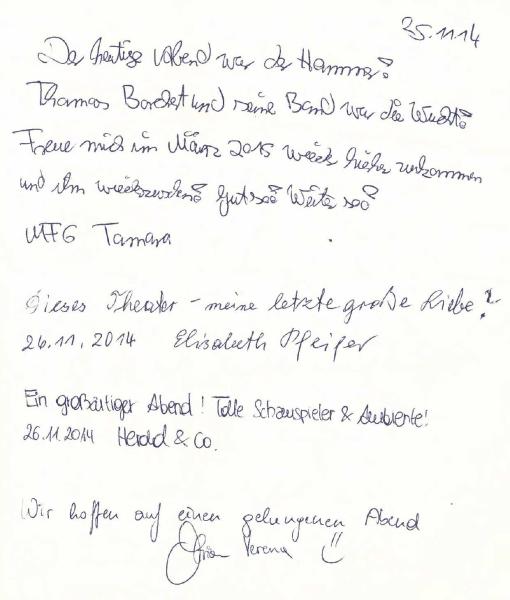 25.11.14
Der heutige Abend war der Hammer!
Thomas Borchert und seine Band war die Wucht!
Freue mich im März 2015 wieder hieher zukommen
und ihn wiederzusehen! Gut so! Weiter so!
MFG Tamara
Dieses Theater - meine letzte große Liebe!
26.11.2014 Elisabeth Pfeifer
Ein großartiger Abend! Tolle Schauspieler & Ambiente!
26.11.2014 Herold & Co.
Wir hoffen auf einen gelungenen Abend
Verena